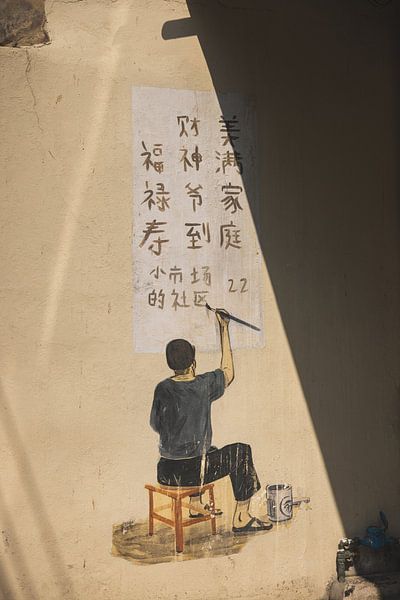 美满家庭
财神爷到
福禄寿
小市场
的社区
22